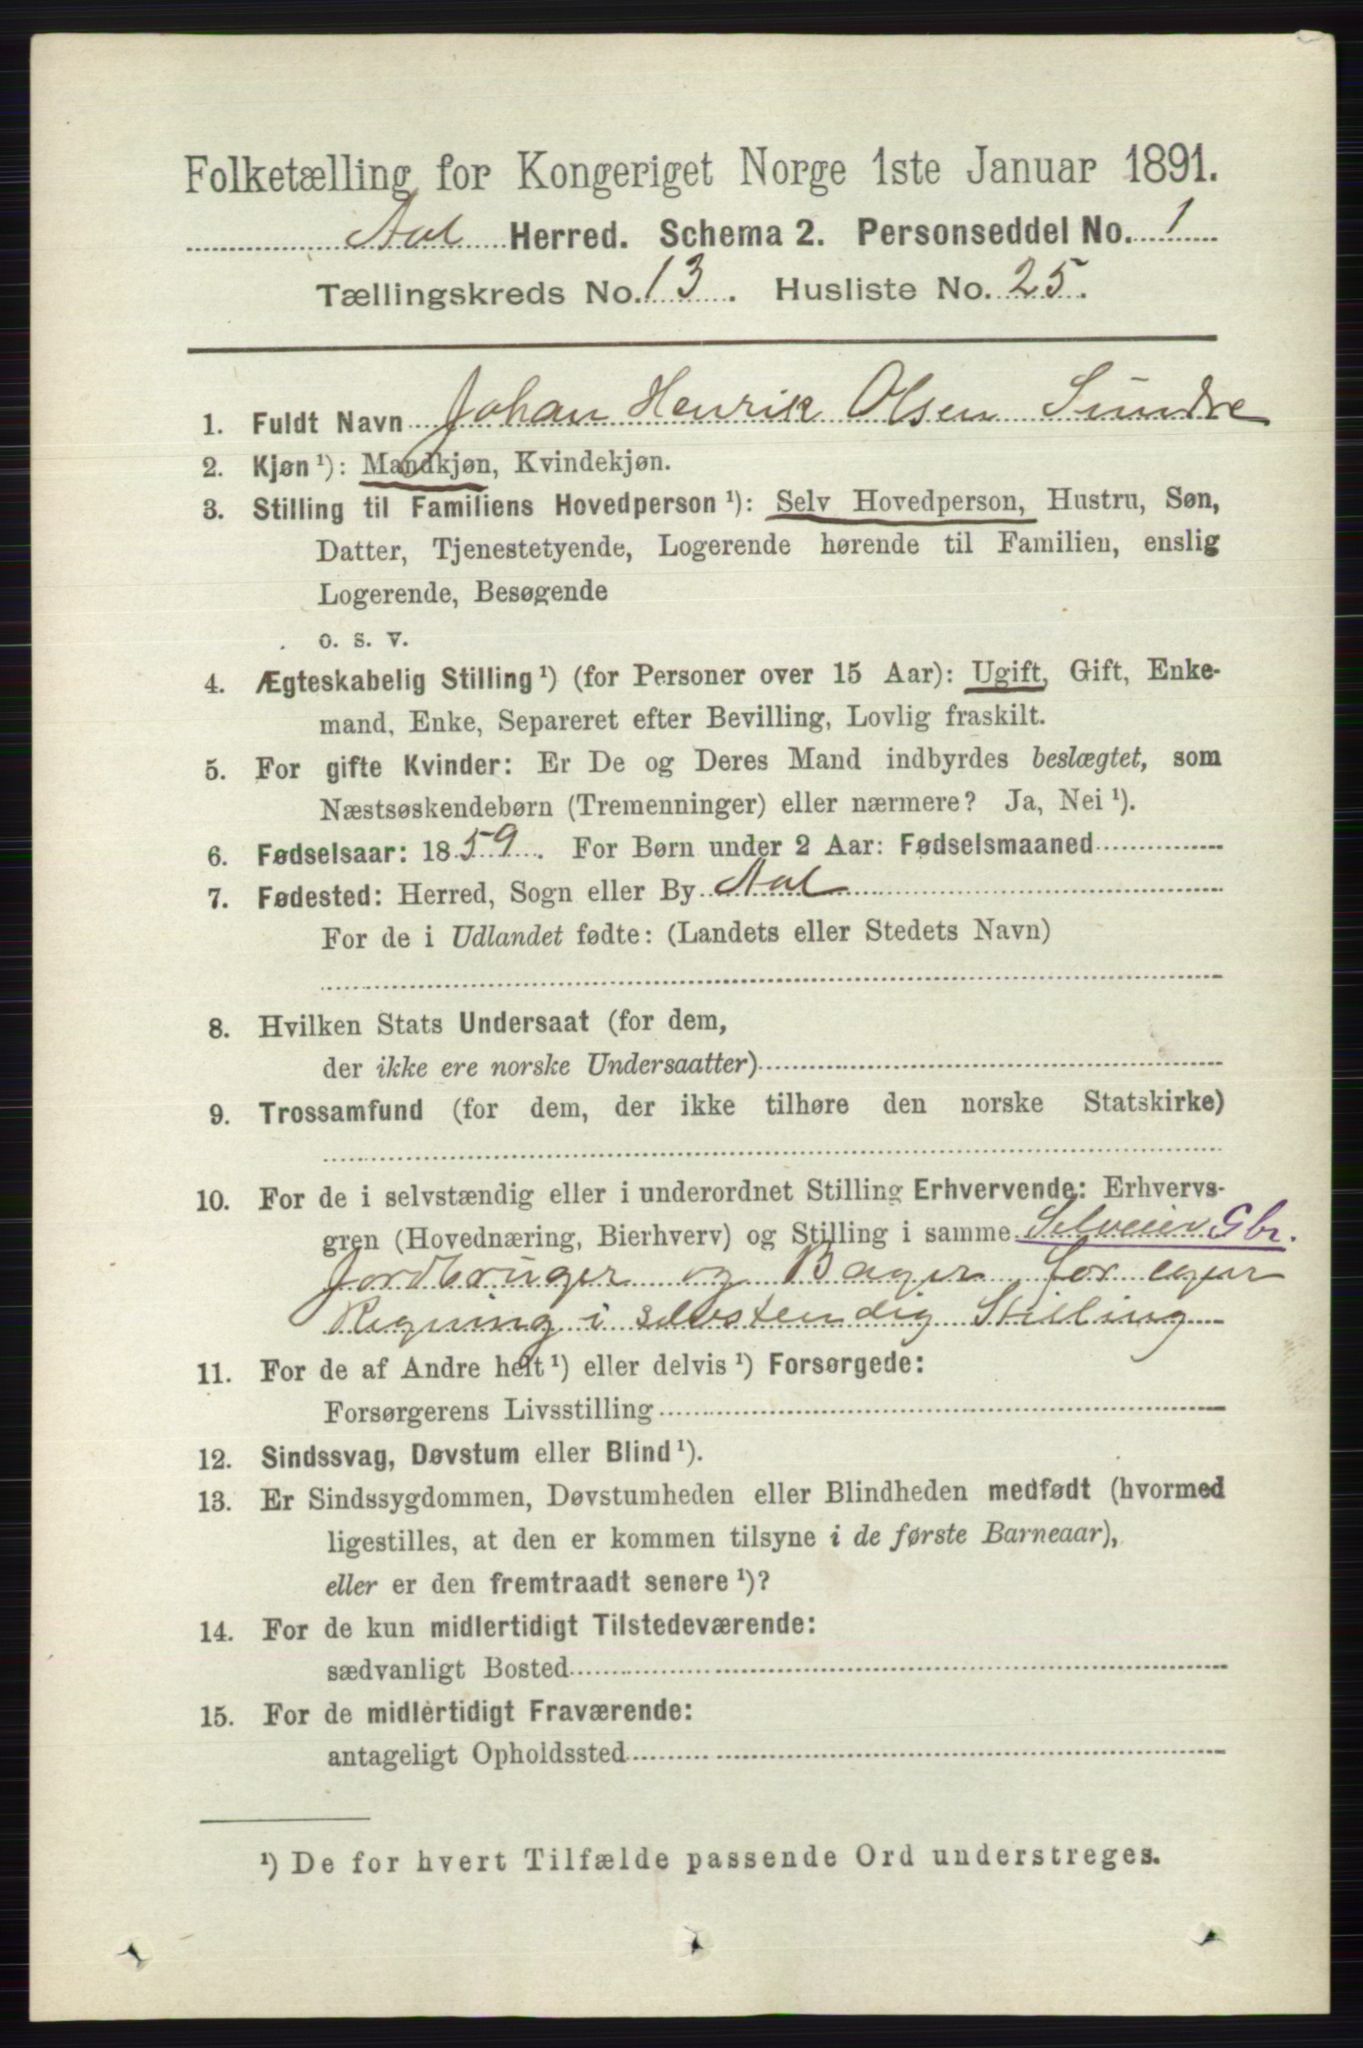 Folketælling for Kongeriget Norge 1ste Januar 1891.
Aal Herred. Schema 2. Personseddel No. 1
Tællingskreds No. 13. Husliste No. 25.
1. Fuldt Navn Johan Henrik Olsen Sundre
2. Kjøn ¹): Mandkjøn, Kvindekjøn.
3. Stilling til Familiens Hovedperson ¹): Selv Hovedperson, Hustru, Søn,
Datter, Tjenestetyende, Logerende hørende til Familien, enslig
Logerende, Besøgende
o. s. v.
4. Ægteskabelig Stilling ¹) (for Personer over 15 Aar): Ugift, Gift, Enke-
mand, Enke, Separeret efter Bevilling, Lovlig fraskilt.
5. For gifte Kvinder: Er De og Deres Mand indbyrdes beslægtet, som
Næstsøskendebørn (Tremenninger) eller nærmere? Ja, Nei ¹).
6. Fødselsaar: 1859. For Børn under 2 Aar: Fødselsmaaned
7. Fødested: Herred, Sogn eller By Aal
For de i Udlandet fødte: (Landets eller Stedets Navn)
8. Hvilken Stats Undersaat (for dem,
der ikke ere norske Undersaatter)
9. Trossamfund (for dem, der ikke tilhøre den norske Statskirke)
10. For de i selvstændig eller i underordnet Stilling Erhvervende: Erhvervs-
gren (Hovednæring, Bierhverv) og Stilling i samme Selveier Gbr.
Jordbruger og Bager for egen
Regning i selvstendig Stilling
11. For de af Andre helt ¹) eller delvis ¹) Forsørgede:
Forsørgerens Livsstilling
12. Sindssvag, Døvstum eller Blind ¹).
13. Er Sindssygdommen, Døvstumheden eller Blindheden medfødt (hvormed
ligestilles, at den er kommen tilsyne i de første Barneaar),
eller er den fremtraadt senere ¹)?
14. For de kun midlertidigt Tilstedeværende:
sædvanligt Bosted
15. For de midlertidigt Fraværende:
antageligt Opholdssted
¹) De for hvert Tilfælde passende Ord understreges.